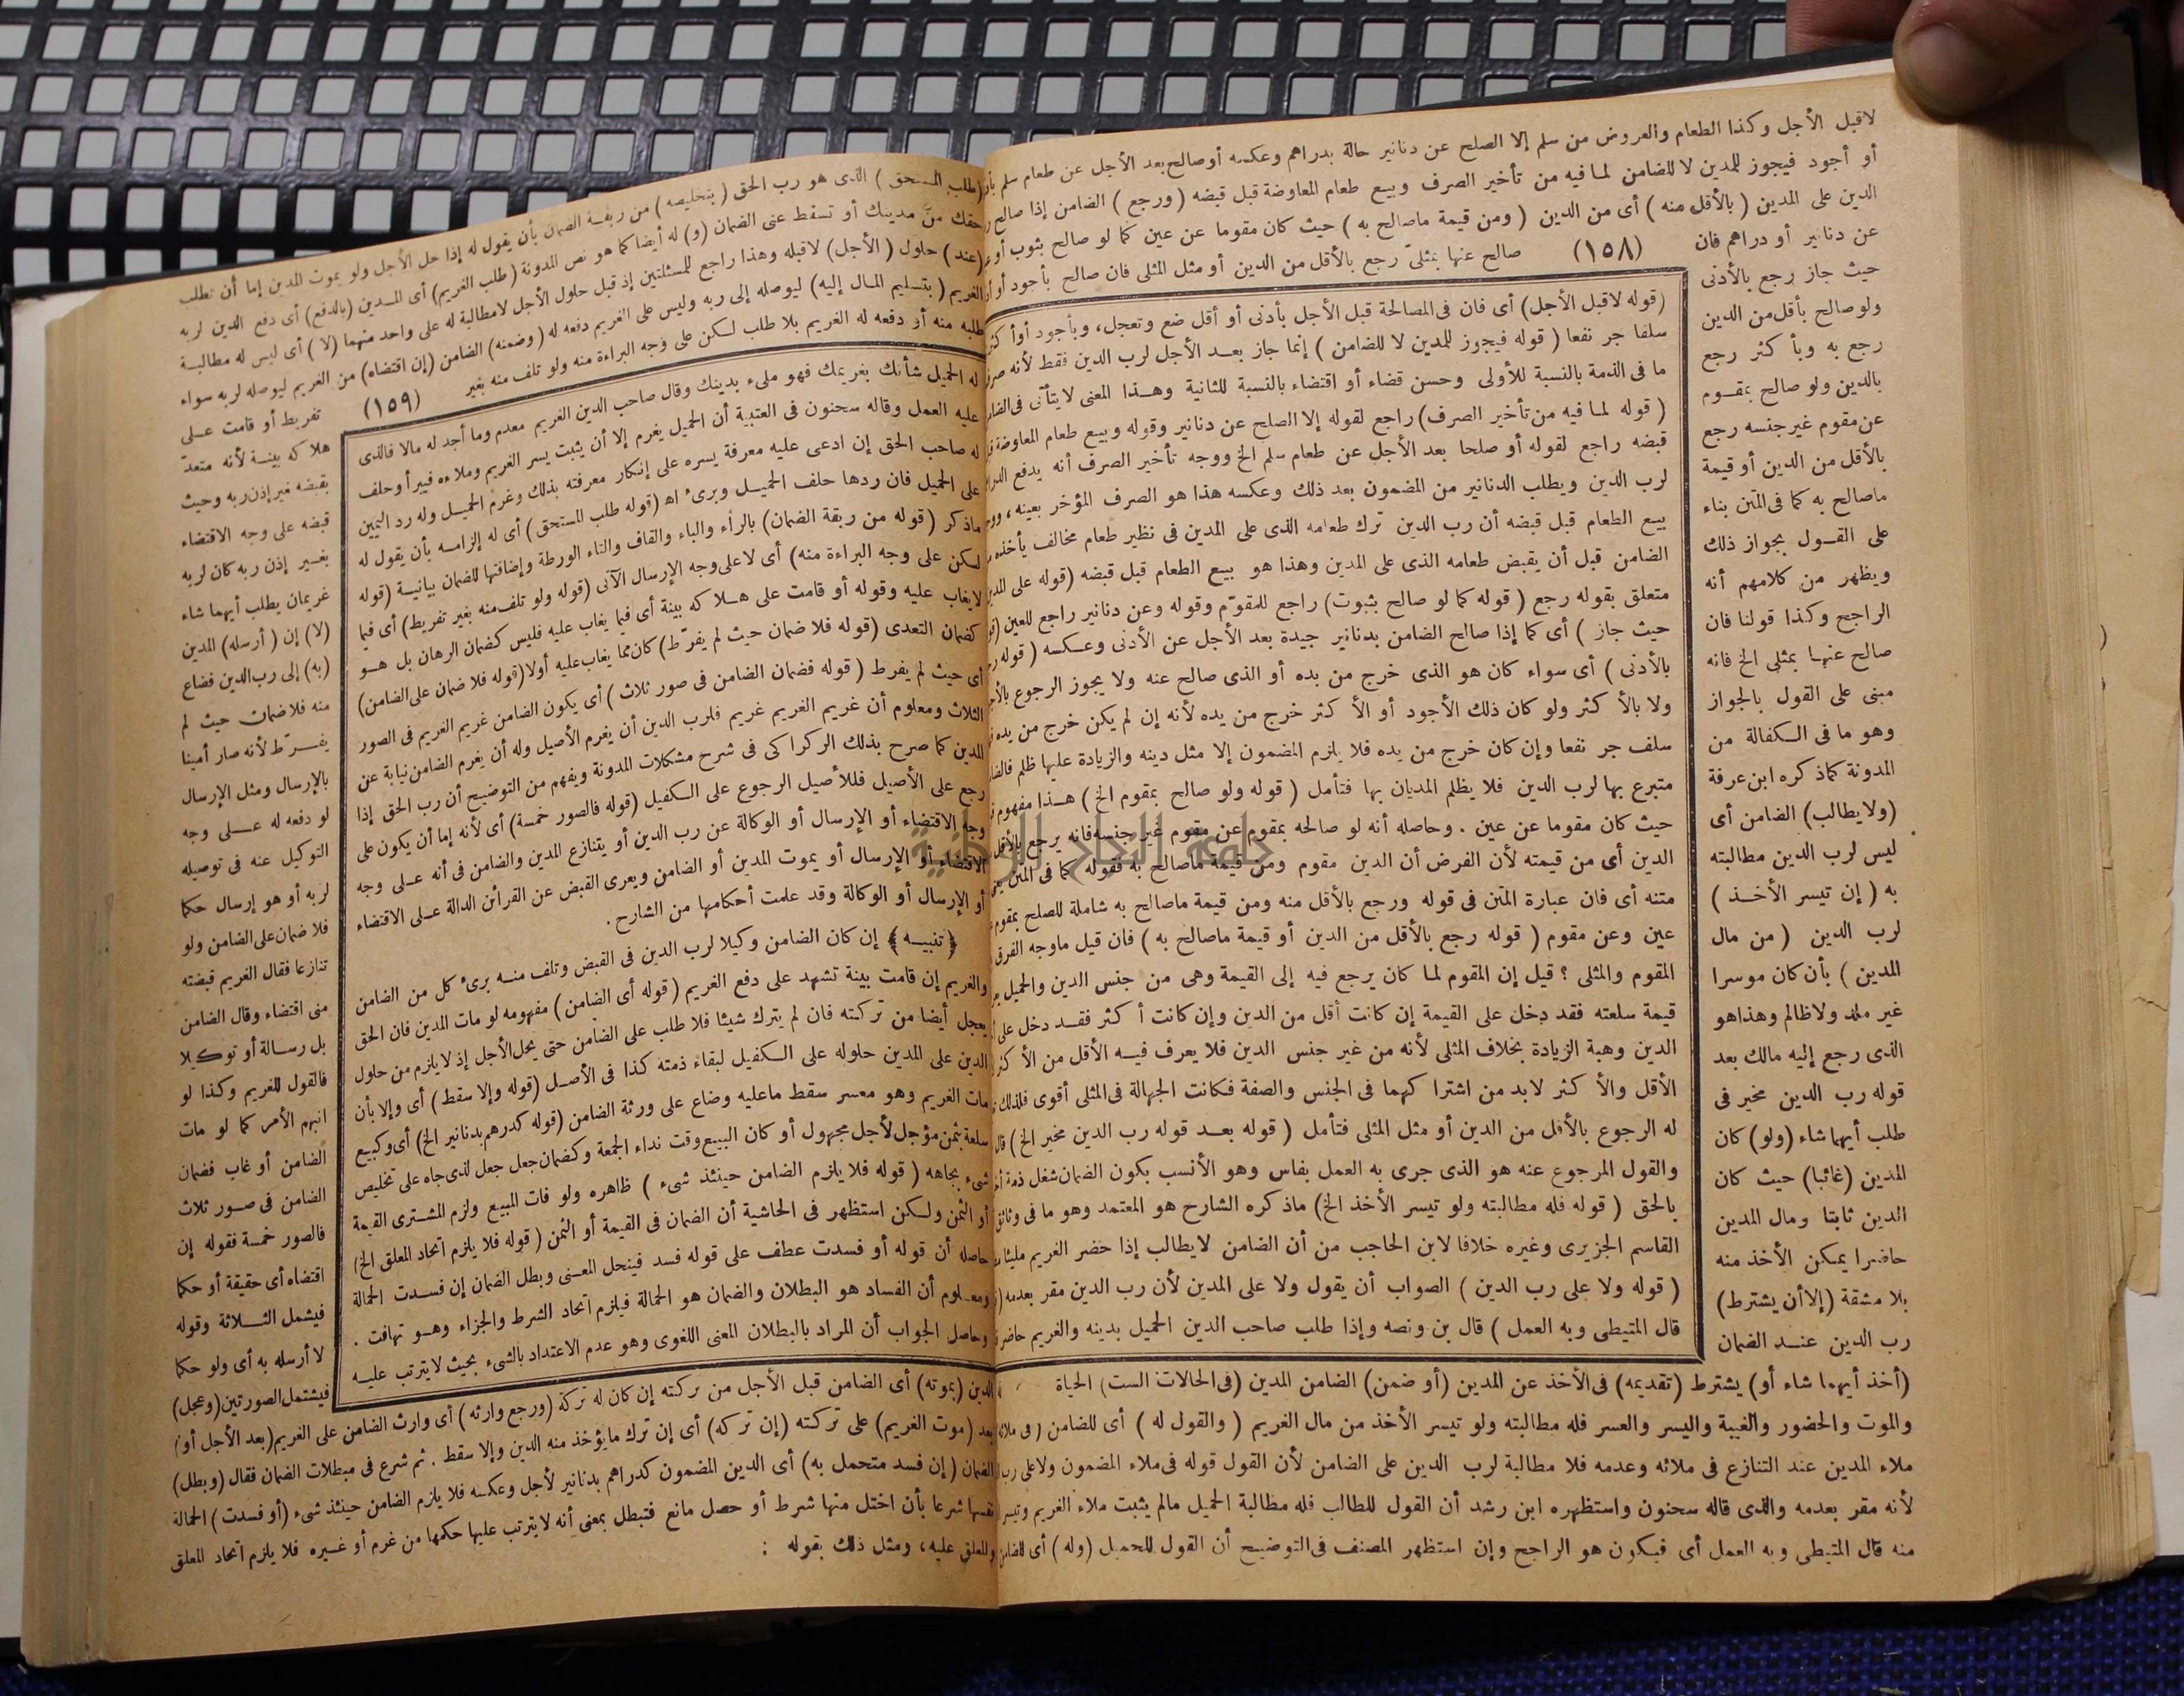 لاقبل الأجل وكذا الطعام والعروض من سلم إلا الصلح عن دنانير حالة بدراهم وعكسه أوصالح بعد الأجل عن طعام سلم
أو أجود فيجوز للمدين لا للضامن لما فيه من تأخير الصرف وبيع طعام المعاوضة قبل قبضه (ورجع) الضامن إذا صالح
الدين على المدين (بالأقل منه) أى من الدين (ومن قيمة ماصالح به) حيث كان مقوما عن عين كما لو صالح بثوب أو
عن دنانير أو دراهم فان
(١٥٨)
صالح عنها بمثلىّ رجع بالأقل من الدين أو مثل المثلى فان صالح بأجود أو
حيث جاز رجع بالأدنى
ولوصالح بأقل من الدين
رجع به وبأ كثر رجع
بالدين ولو صالح بمقوم
عن مقوم غير جنسه رجع
بالأقل من الدين أو قيمة
ماصالح به كما فى المتن بناء
على القول بجواز ذلك
ويظهر من كلامهم أنه
الراجح وكذا قولنا فان
صالح عنها بمثلى الخ فانه
مبنى على القول بالجواز
وهو ما فى الكفالة من
المدونة كماذكره ابن عرفة
(ولايطالب) الضامن أى
ليس لرب الدين مطالبته
به (إن تيسر الأخذ)
لرب الدين (من مال
المدين) بأن كان موسرا
غير ملد ولاظالم وهذاهو
الذى رجع إليه مالك بعد
قوله رب الدين مخير فى
طلب أيهما شاء (ولو) كان
المدين (غائبا) حيث كان
الدين ثابتا ومال المدين
حاضرا يمكن الأخذ منه
بلا مشقة (إلاأن يشترط)
رب الدين عند الضمان
(قوله لاقبل الأجل) أى فان فى المصالحة قبل الأجل بأدنى أو أقل ضع وتعجل، وبأجود أوأ كثر
سلفا جر نفعا (قوله فيجوز للمدين لا للضامن) إنما جاز بعد الأجل لرب الدين فقط لأنه
ما فى الذمة بالنسبة للأولى وحسن قضاء أو اقتضاء بالنسبة للثانية وهذا المعنى لايتأتى
(قوله لما فيه من تأخير الصرف) راجع لقوله إلا الصلح عن دنانير وقوله وبيع طعام المعاوضة
قبضه راجع لقوله أو صلحا بعد الأجل عن طعام سلم الخ ووجه تأخير الصرف أنه يدفع
لرب الدين ويطلب الدنانير من المضمون بعد ذلك وعكسه هذا هو الصرف المؤخر بعينه،
بيع الطعام قبل قبضه أن رب الدين ترك طعامه الذى على المدين فى نظير طعام مخالف
الضامن قبل أن يقبض طعامه الذى على المدين وهذا هو بيع الطعام قبل قبضه (قوله على
متعلق بقوله رجع (قوله كما لو صالح بثوب) راجع للمقوّم وقوله وعن دنانير راجع للعين
حيث جاز) أى كما إذا صالح الضامن بدنانير جيدة بعد الأجل عن الأدنى وعكسه (قوله
بالأدنى) أى سواء كان هو الذى خرج من يده أو الذى صالح عنه ولا يجوز الرجوع
ولا بالأ كثر ولو كان ذلك الأجود أو الأ كثر خرج من يده لأنه إن لم يكن خرج من يده
سلف جر نفعا وإن كان خرج من يده فلا يلزم المضمون إلا مثل دينه والزيادة عليها ظلم
متبرع بها لرب الدين فلا يظلم المديان بها فتأمل (قوله ولو صالح بمقوم الخ) هذا مفهوم
حيث كان مقوما عن عين . وحاصله أنه لو صالحه بمقوم عن مقوم غير جنسه فانه يرجع بالأقل
الدين أى من قيمته لأن الفرض أن الدين مقوم ومن قيمة ماصالح به فقوله كما فى المتن
متنه أى فان عبارة المتن فى قوله ورجع بالأقل منه ومن قيمة ماصالح به شاملة للصلح بمقوم
عين وعن مقوم (قوله رجع بالأقل من الدين أو قيمة ماصالح به) فان قيل ماوجه الفرق
المقوم والمثلى ؟ قيل إن المقوم لما كان يرجع فيه إلى القيمة وهى من جنس الدين والحميل
قيمة سلعته فقد دخل على القيمة إن كانت أقل من الدين وإن كانت أ كثر فقد دخل على
الدين وهبة الزيادة بخلاف المثلى لأنه من غير جنس الدين فلا يعرف فيه الأقل من الأ كثر
الأقل والأ كثر لابد من اشترا كهما فى الجنس والصفة فكانت الجهالة فى المثلى أقوى فلذلك
له الرجوع بالأقل من الدين أو مثل المثلى فتأمل (قوله بعد قوله رب الدين مخير الخ)
والقول المرجوع عنه هو الذى جرى به العمل بفاس وهو الأنسب بكون الضمان شغل ذمة
بالحق (قوله فله مطالبته ولو تيسر الأخذ الخ) ماذكره الشارح هو المعتمد وهو ما فى وثائق
القاسم الجزيرى وغيره خلافا لابن الحاجب من أن الضامن لايطالب إذا حضر الغريم مليئا
(قوله ولا على رب الدين) الصواب أن يقول ولا على المدين لأن رب الدين مقر بعدمه
قال المتيطى وبه العمل) قال بن ونصه وإذا طلب صاحب الدين الحميل بدينه والغريم حاضر
(أخذ أيهما شاء أو) يشترط (تقديمه) فى الأخذ عن المدين (أو ضمن) الضامن المدين (فى الحالات الست) الحياة
والموت والحضور والغيبة واليسر والعسر فله مطالبته ولو تيسر الأخذ من مال الغريم (والقول له) أى للضامن (فى ملائه
ملاء المدين عند التنازع فى ملائه وعدمه فلا مطالبة لرب الدين على الضامن لأن القول قوله فى ملاء المضمون ولاعلى رب
لأنه مقر بعدمه والذى قاله سحنون واستظهره ابن رشد أن القول للطالب فله مطالبة الحميل مالم يثبت ملاء الغريم
منه قال المتيطى وبه العمل أى فيكون هو الراجح وإن استظهر المصنف فى التوضيح أن القول للحميل (وله) أى
(طلب المستحق) الذى هو رب الحق (بتخليصه) من ربقة الضمان بأن يقول له إذا حل الأجل ولو بموت المدين إما أن تطلب
حقك من مدينك أو تسقط عنى الضمان (و) له أيضا كما هو نص المدونة (طلب الغريم) أى المدين (بالدفع) أى دفع الدين لربه
(عند) حلول (الأجل) لاقبله وهذا راجع للمسئلتين إذ قبل حلول الأجل لامطالبة له على واحد منهما (لا) أى ليس له مطالبة
الغريم (بتسليم المال إليه) ليوصله إلى ربه وليس على الغريم دفعه له (وضمنه) الضامن (إن اقتضاه) من الغريم ليوصله لربه سواء
طلبه منه أو دفعه له الغريم بلا طلب لكن على وجه البراءة منه ولو تلف منه بغير
(١٥٩)
تفريط أو قامت على
هلاكه بينة لأنه متعدّ
بقبضه بغير إذن ربه وحيث
قبضه على وجه الاقتضاء
بغير إذن ربه كان لربه
غريمان يطلب أيهما شاء
(لا) إن (أرسله) المدين
(به) إلى رب الدين فضاع
منه فلاضمان حيث لم
يفرّط لأنه صار أمينا
بالإرسال ومثل الإرسال
لو دفعه له على وجه
التوكيل عنه فى توصيله
لربه أو هو إرسال حكما
فلا ضمان على الضامن ولو
تنازعا فقال الغريم قبضته
منى اقتضاء وقال الضامن
بل رسالة أو توكيلا
فالقول للغريم وكذا لو
انبهم الأمر كما لو مات
الضامن أو غاب فضمان
الضامن فى صور ثلاث
فالصور خمسة فقوله إن
اقتضاه أى حقيقة أو حكما
فيشمل الثلاثة وقوله
لا أرسله به أى ولو حكما
فيشتمل الصورتين (وعجل)
له الحميل شأنك بغريمك فهو ملىء بدينك وقال صاحب الدين الغريم معدم وما أجد له مالا فالذى
عليه العمل وقاله سحنون فى العتبية أن الحميل يغرم إلا أن يثبت يسر الغريم وملاءه فيبرأ وحلف
له صاحب الحق إن ادعى عليه معرفة يسره على إنكار معرفته بذلك وغرم الحميل وله رد اليمين
على الحميل فان ردها حلف الحميل وبرىء اه (قوله طلب المستحق) أى له إلزامه بأن يقول له
ماذكر (قوله من ربقة الضمان) بالراء والباء والقاف والتاء الورطة وإضافتها للضمان بيانية (قوله
لكن على وجه البراءة منه) أى لاعلى وجه الإرسال الآتى (قوله ولو تلف منه بغير تفريط) أى فيما
لايغاب عليه وقوله أو قامت على هلا كه بينة أى فيما يغاب عليه فليس كضمان الرهان بل هو
كضمان التعدى (قوله فلا ضمان حيث لم يفرّط) كان مما يغاب عليه أولا (قوله فلا ضمان على الضامن)
أى حيث لم يفرط (قوله فضمان الضامن فى صور ثلاث) أى يكون الضامن غريم الغريم فى الصور
الثلاث ومعلوم أن غريم الغريم غريم فلرب الدين أن يغرم الأصيل وله أن يغرم الضامن نيابة عن
المدين كما صرح بذلك الركراكى فى شرح مشكلات المدونة ويفهم من التوضيح أن رب الحق إذا
رجع على الأصيل فللأصيل الرجوع على الكفيل (قوله فالصور خمسة) أى لأنه إما أن يكون على
وجه الاقتضاء أو الإرسال أو الوكالة عن رب الدين أو يتنازع المدين والضامن فى أنه على وجه
الاقتضاء أو الإرسال أو يموت المدين أو الضامن ويعرى القبض عن القرائن الدالة على الاقتضاء
أو الإرسال أو الوكالة وقد علمت أحكامها من الشارح.
﴿تنبيه﴾ إن كان الضامن وكيلا لرب الدين فى القبض وتلف منه برىء كل من الضامن
والغريم إن قامت بينة تشهد على دفع الغريم (قوله أى الضامن) مفهومه لو مات المدين فان الحق
يعجل أيضا من تركته فان لم يترك شيئا فلا طلب على الضامن حتى يحل الأجل إذ لايلزم من حلول
الدين على المدين حلوله على الكفيل لبقاء ذمته كذا فى الأصل (قوله وإلا سقط) أى وإلا بأن
مات الغريم وهو معسر سقط ماعليه وضاع على ورثة الضامن (قوله كدرهم بدنانير الخ) أى وكبيع
سلعة بثمن مؤجل لأجل مجهول أو كان البيع وقت نداء الجمعة وكضمان جعل جعل لذى جاه على تخليص
شىء بجاهه (قوله فلا يلزم الضامن حينئذ شىء) ظاهره ولو فات المبيع ولزم المشترى القيمة
أو الثمن ولكن استظهر فى الحاشية أن الضمان فى القيمة أو الثمن (قوله فلا يلزم اتحاد المعلق الخ)
حاصله أن قوله أو فسدت عطف على قوله فسد فينحل المعنى وبطل الضمان إن فسدت الحمالة
ومعلوم أن الفساد هو البطلان والضمان هو الحمالة فيلزم اتحاد الشرط والجزاء وهو تهافت .
وحاصل الجواب أن المراد بالبطلان المعنى اللغوى وهو عدم الاعتداد بالشىء بحيث لايترتب عليه
الدين (بموته) أى الضامن قبل الأجل من تركته إن كان له تركة (ورجع وارثه) أى وارث الضامن على الغريم (بعد الأجل أو)
بعد (موت الغريم) على تركته (إن تركه) أى إن ترك مايؤخذ منه الدين وإلا سقط . ثم شرع فى مبطلات الضمان فقال (وبطل)
الضمان (إن فسد متحمل به) أى الدين المضمون كدراهم بدنانير لأجل وعكسه فلا يلزم الضامن حينئذ شىء (أو فسدت) الحمالة
نفسها شرعا بأن اختل منها شرط أو حصل مانع فتبطل بمعنى أنه لايترتب عليها حكمها من غرم أو غيره فلا يلزم اتحاد المعلق
والمعلق عليه، ومثل ذلك بقوله :
جامعة النجاح الوطنية